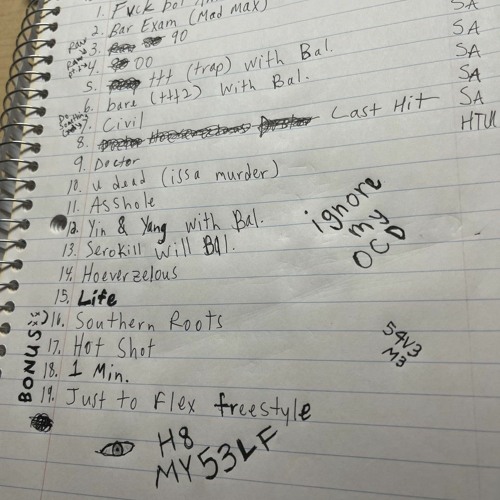 1. Fvck
2. Bar Exam (Mad Max) SA
RAW 3. 90 SA
4. 00 SA
5. ttt (trap) with Bal. SA
6. bare (ttt2) with Bal. SA
7. Civil
8. Last Hit HTUL
9. Doctor
10. u dead (issa murder)
11. Asshole
12. Yin & Yang with Bal.
13. Serokill will Bal.
14. Hoeverzelous
15. Life
16. Southern Roots
17. Hot Shot
18. 1 Min.
19. Just to Flex freestyle
BONUS
ignore
my
OCD
54V3
M3
H8
MY 53LF